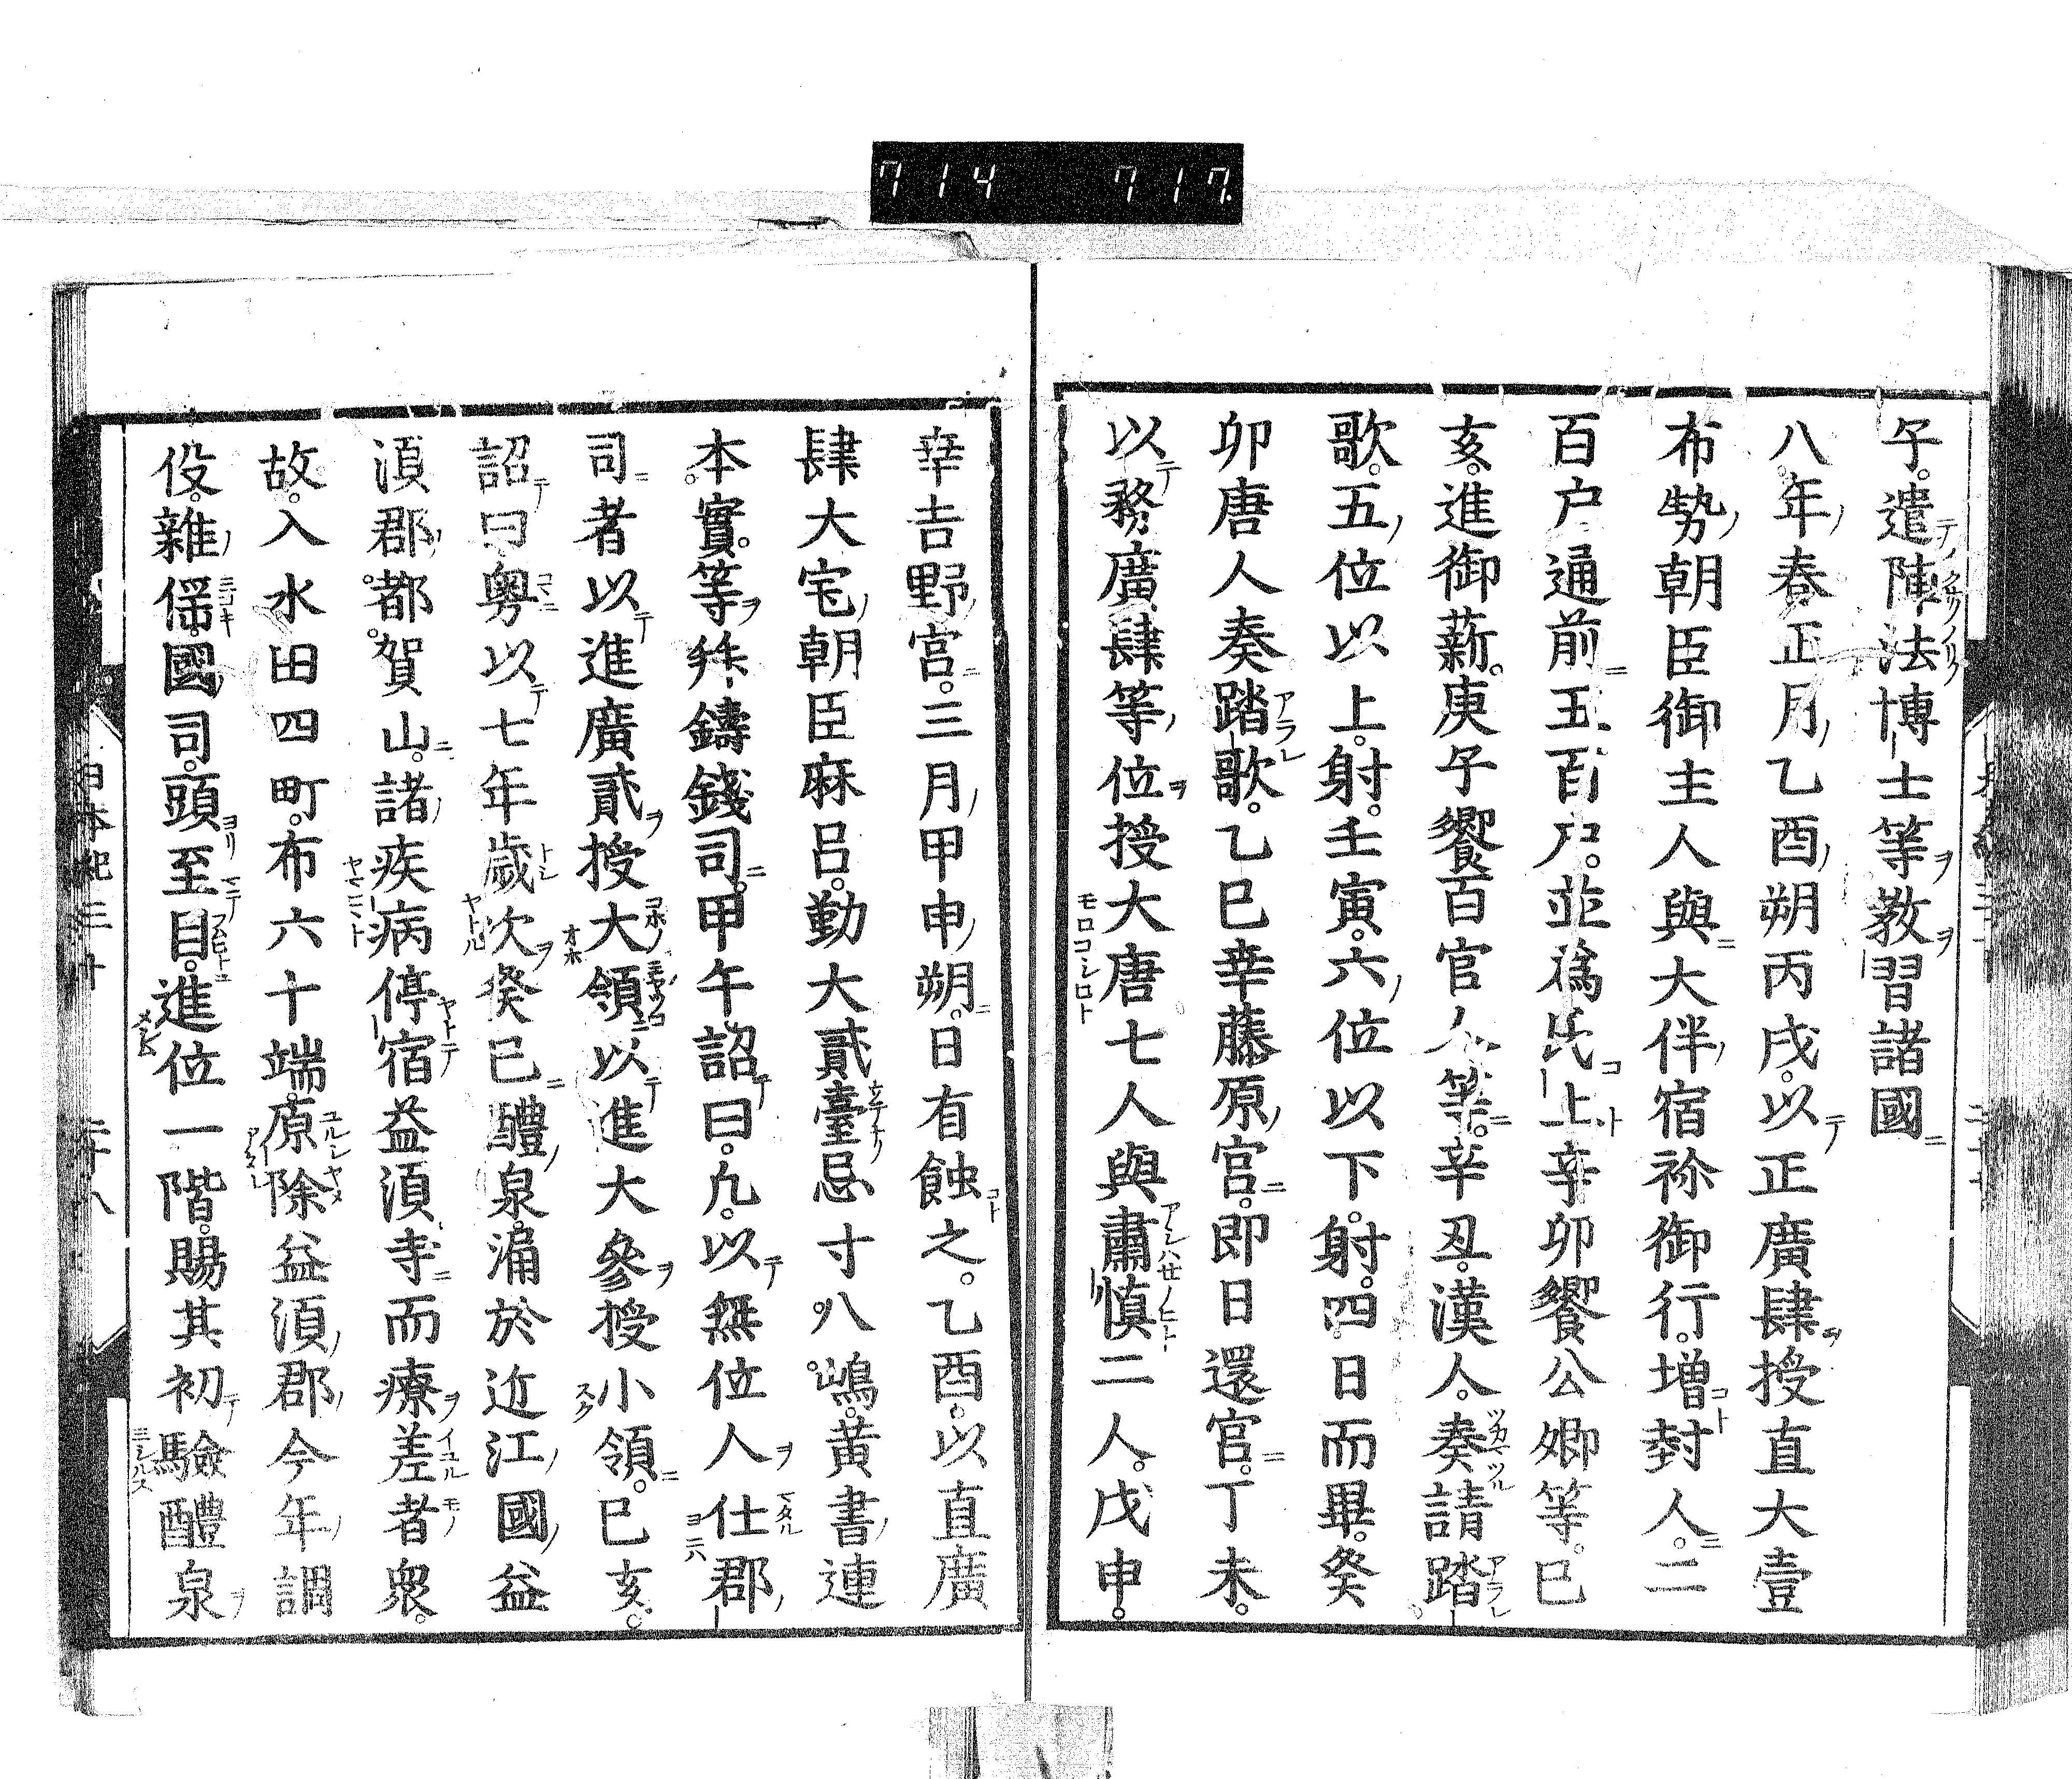 714 717
子。遣陣法博士等教習諸國
八年春正月乙酉朔丙戌。以正廣肆授直大壹
布勢朝臣御主人與大伴宿祢御行。増封人。二
百户通前五百戸。並爲氏上辛卯饗公卿等。巳
亥。進御薪。庚子饗百官人等。辛丑。漢人。奏請踏
歌。五位以上。射。壬寅。六位以下。射。四日而畢。癸
卯唐人奏踏歌。乙巳幸藤原宮。即日還宮。丁未。
以務廣肆等位授大唐七人與肅慎二人。戊申。
幸吉野宮。三月甲申朔。日有蝕之。乙酉。以直廣
肆大宅朝臣麻呂。勤大貳臺忌寸。八嶋。黄書連
本實。等拜鑄錢司。甲午詔曰。九。以無位人仕郡
司者以進廣貳授大領以進大參授小領。巳亥。
詔曰粤以七年歳次癸巳醴泉。涌於近江國益
湏郡。都賀山。諸疾病停宿益湏寺而療差者衆。
故。入水田四町。布六十端。原除益湏郡今年調
役。雜徭。國司。頭至目。進位一階。賜其初驗醴泉
日本紀三十
二十八